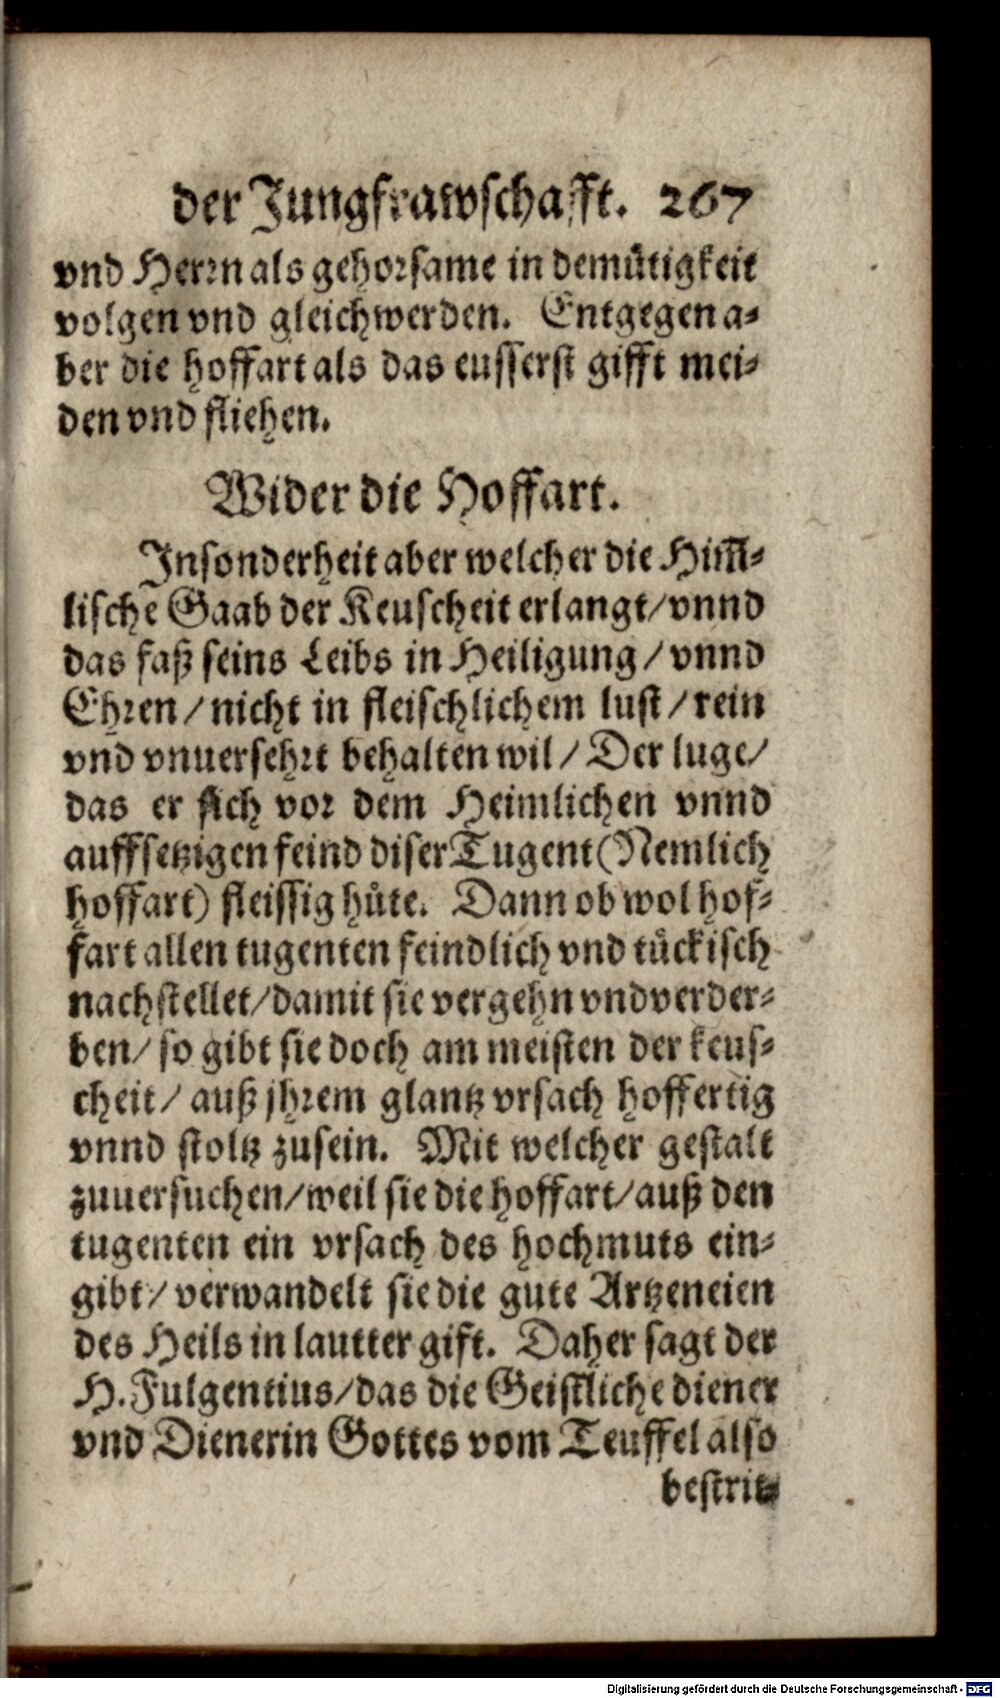 der Jungfrawschafft. 267
vnd Herrn als gehorsame in demuͤtigkeit
volgen vnd gleichwerden. Entgegen a-
ber die hoffart als das eusserst gifft mei-
den vnd fliehen.
Wider die Hoffart.
Insonderheit aber welcher die Him̃-
lische Gaab der Keuscheit erlangt/ vnnd
das faß seins Leibs in Heiligung / vnnd
Ehren / nicht in fleischlichem lust / rein
vnd vnuersehrt behalten wil / Der luge/
das er sich vor dem Heimlichen vnnd
auffsetzigen feind diser Tugent (Nemlich
hoffart) fleissig huͤte. Dann ob wol hof-
fart allen tugenten feindlich vnd tuͤckisch
nachstellet/ damit sie vergehn vnd verder-
ben/ so gibt sie doch am meisten der keus-
cheit/ auß jhrem glantz vrsach hoffertig
vnnd stoltz zusein. Mit welcher gestalt
zuuersuchen/ weil sie die hoffart/ auß den
tugenten ein vrsach des hochmuts ein-
gibt/ verwandelt sie die gute Artzeneien
des Heils in lautter gift. Daher sagt der
H. Fulgentius/ das die Geistliche diener
vnd Dienerin Gottes vom Teuffel also
bestrit-
Digitalisierung gefördert durch die Deutsche Forschungsgemeinschaft - DFG